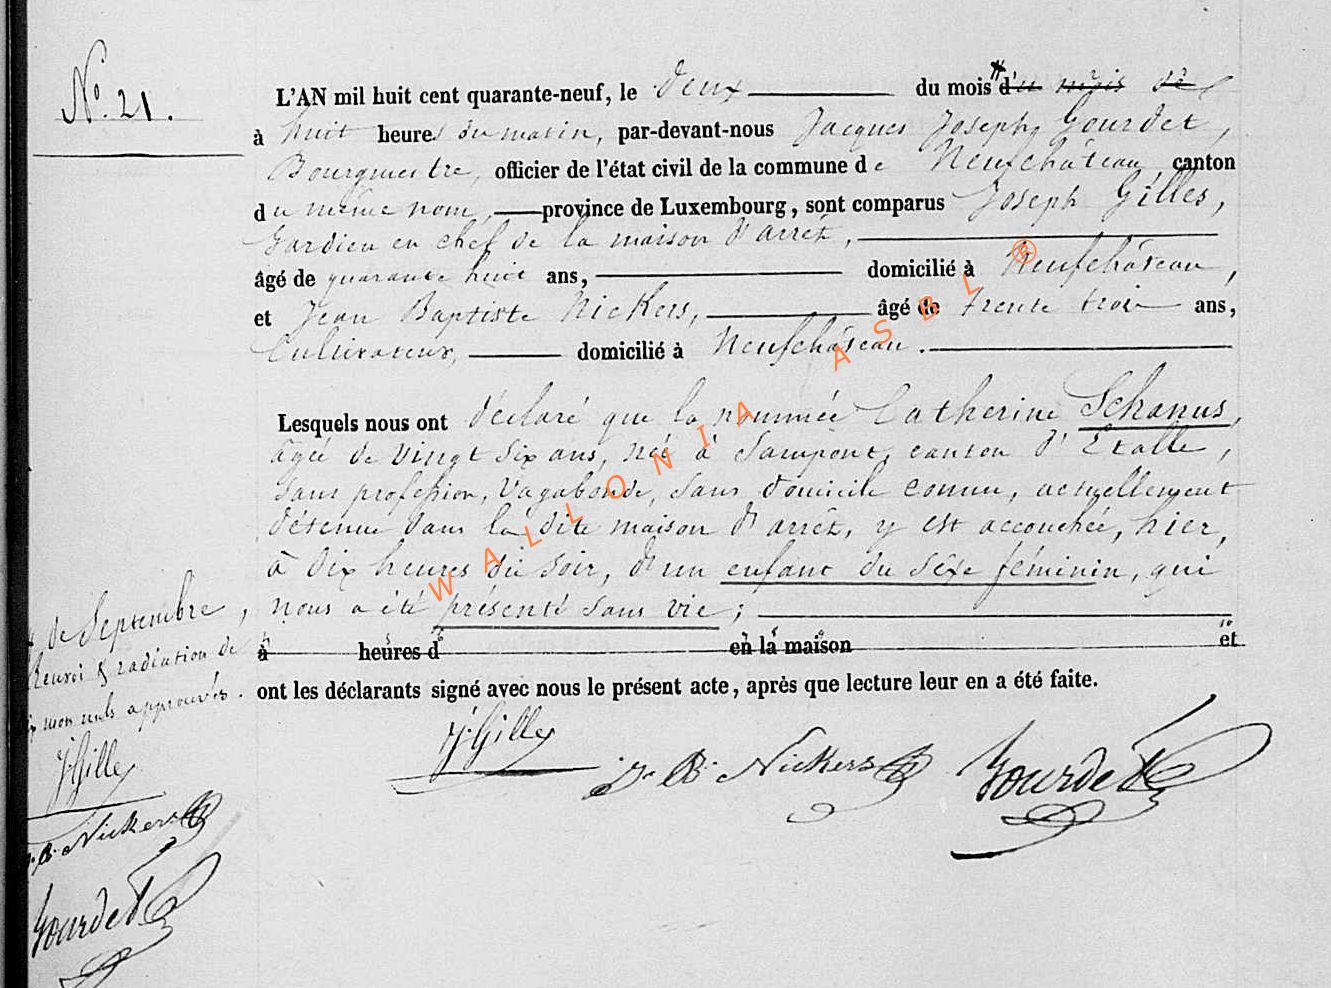 N° 21.
L'AN mil huit cent quarante-neuf, le deux du mois d'u mois de
à huit heures du matin, par-devant-nous Jacques Joseph Gourdet,
Bourgmestre, officier de l'état civil de la commune de Neufchâteau canton
du même nom, province de Luxembourg, sont comparus Joseph Gilles,
Gardien en chef de la maison d'arrêt,
âgé de quarante huit ans, domicilié à Neufchâteau,
et Jean Baptiste Nickers, âgé de trente trois ans,
Cultivateur, domicilié à Neufchâteau.
Lesquels nous ont déclaré que la nommée Catherine Schanus,
âgée de vingt six ans, née à Sampont, canton d'Etalle,
sans profession, vagabonde, sans domicile connu, actuellement
détenue dans la dite maison d'arrêt, y est accouchée, hier,
à dix heures du soir, d'un enfant du sexe féminin, qui
nous a été présenté sans vie;
à heures d en la maison et
ont les déclarants signé avec nous le présent acte, après que lecture leur en a été faite.
J. Gilles
J. B. Nickers
Gourdet
de Septembre,
Renvoi & radiation de
mots nuls approuvés.
J. Gilles
J. B. Nickers
Gourdet
WALLONIA ASBL ®